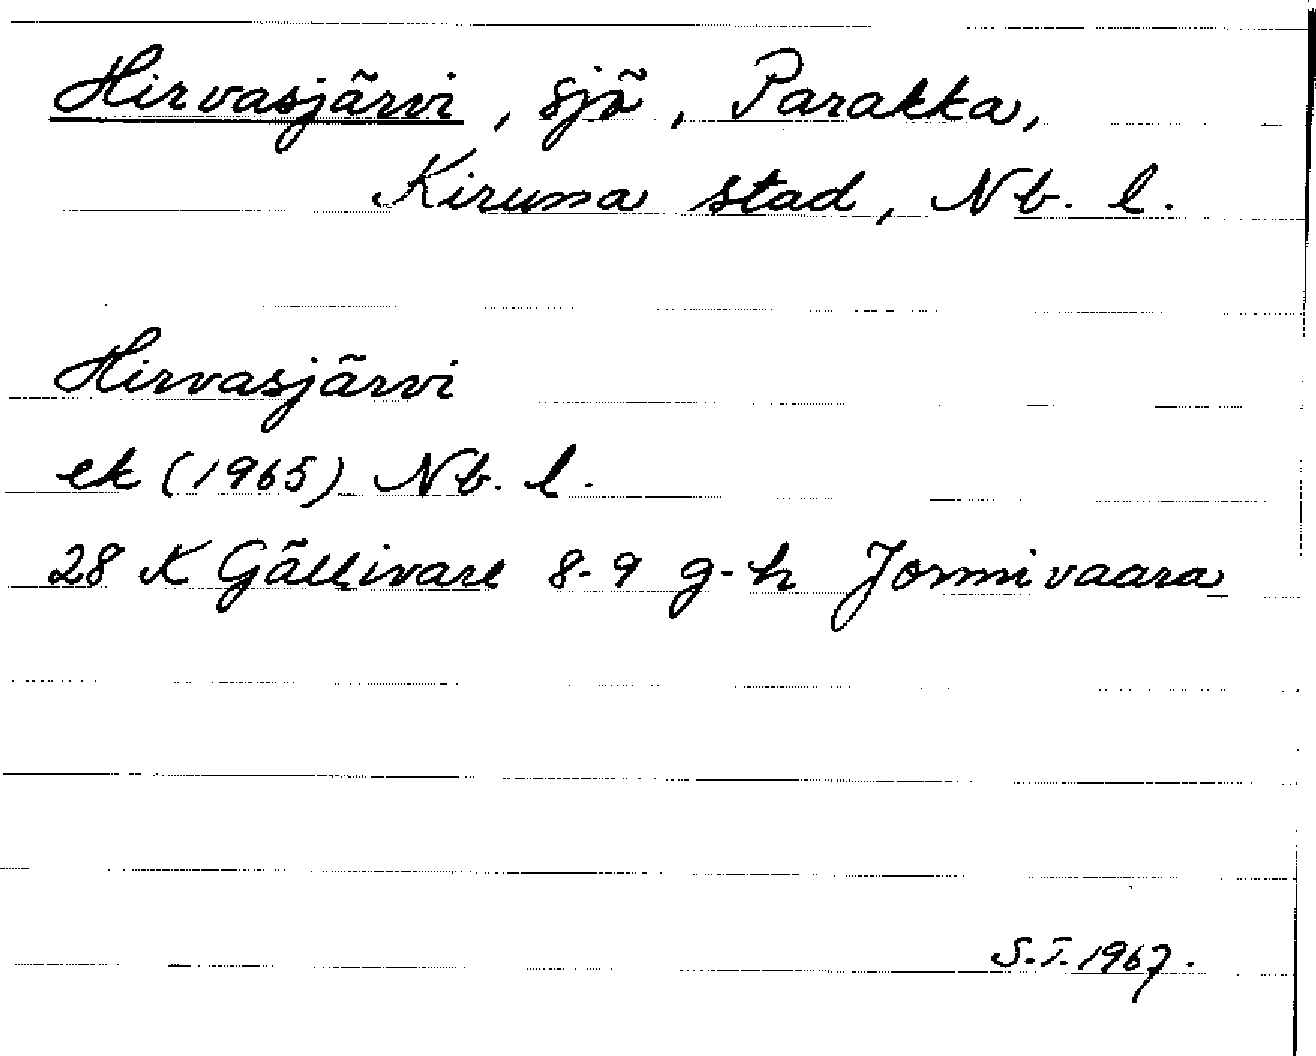 Hirvasjärvi, sjö, Parakka,
Kiruna stad, Nb. l.
Hirvasjärvi
ek (1965) Nb. l.
28 K Gällivare 8-9 g-h Jonnivaara
S.T. 1967.